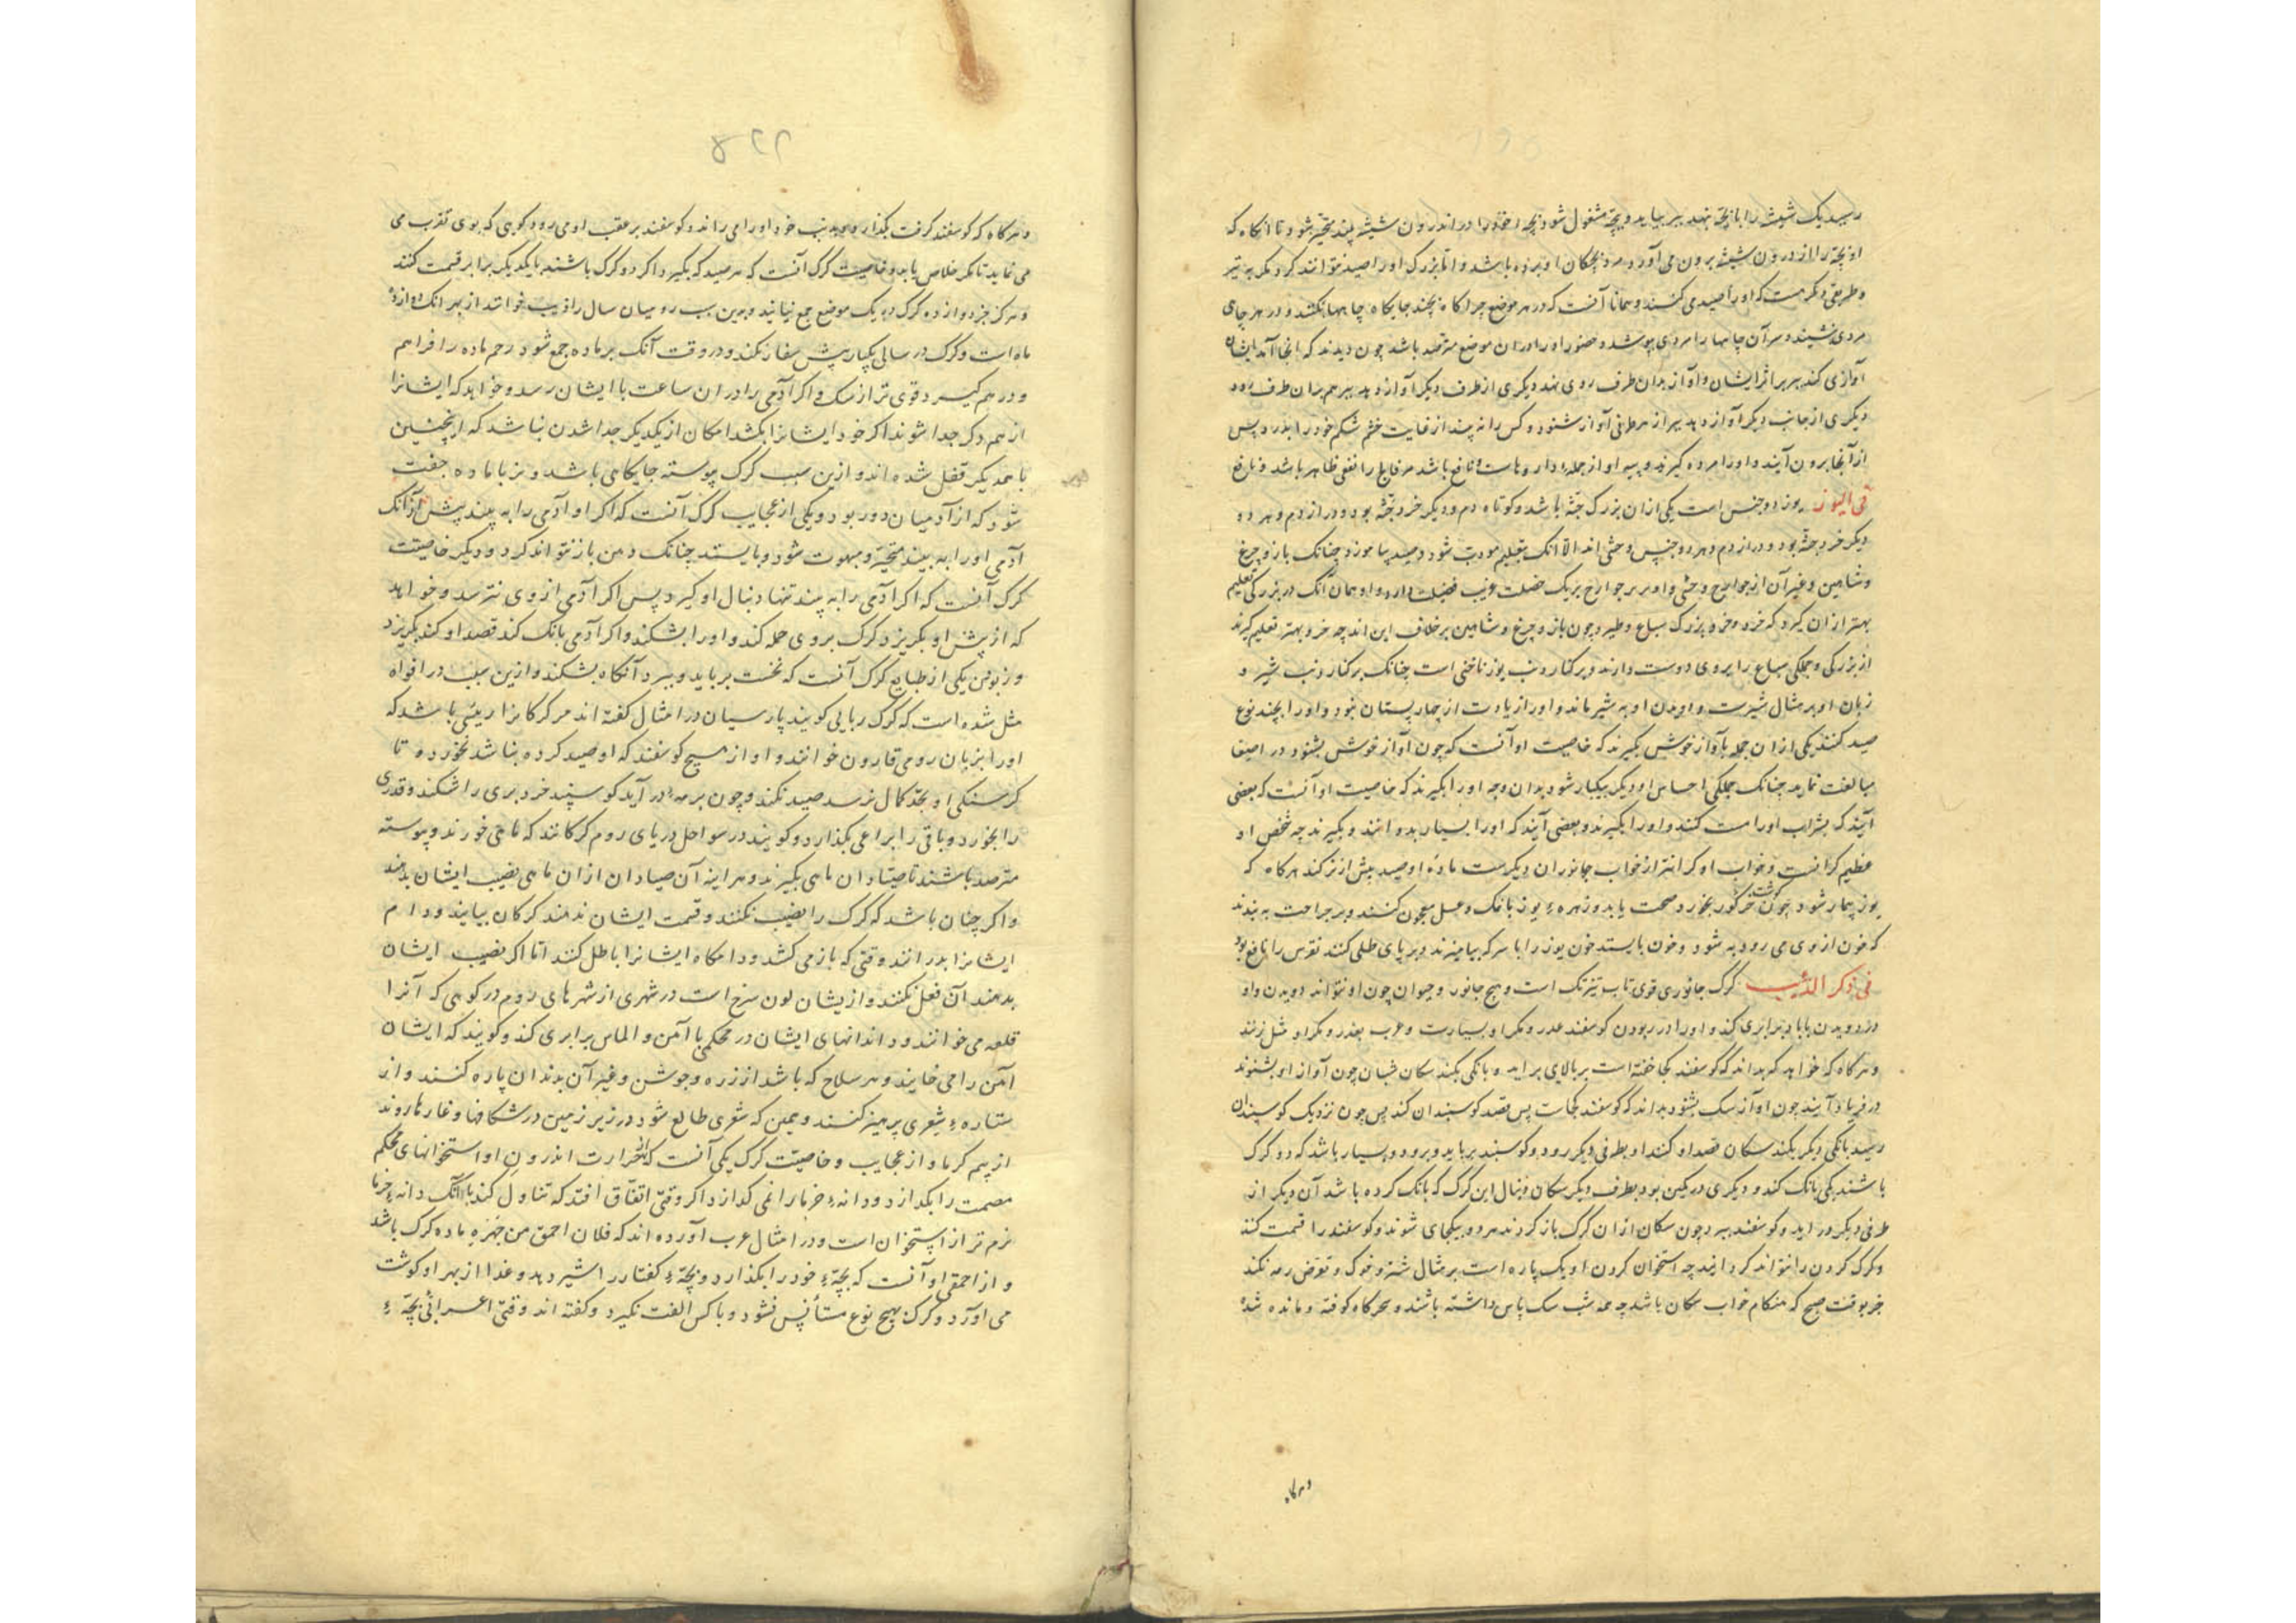 رسید یک شیشه را با بچه نهد ببر بیاید و بچه مشغول شود بچه خود را در اندرون شیشه بیند متحیر شود تا آنگاه که
او بچه را از درون شیشه برون می آورد مرد بچگان او برده باشد و اما بزرگ او را صید نتوانند کرد مگر به تیر
و طریقی دیگرست که او را صید می کنند و همانا آنست که در هر موضع چراگاه چند جایگاه چاهها بکنند و در هر چاهی
مردی نشیند و سر آن چاهها را مردی پوشد و حضور او را در آن موضع مترصد باشد چون دیدند که آنجا آمد ایشان
آوازی کند ببر بر اثر ایشان و آواز بدان طرف روی نهد دیگری از طرف دیگر آواز دهد ببر هم بدان طرف رود
دیگری از جانب دیگر آواز دهد ببر از هر طرفی آواز شنود و کس را نه بیند از غایت خشم شکم خود را بدرد پس
از آنجا برون آیند و او را مرده گیرند و پیه او از جمله داروهاست نافع باشد مر فالج را نفعی ظاهر باشد و نافع
فی الیوز یوز دو جنس است یکی ازان بزرگ جثه باشد و کوتاه دم و دیگر خرد جثه بود و دراز دم و هر دو
دیگر خرد جثه بود و دراز دم و هر دو جنس وحشی اند الا آنک بتعلیم مودب شود و صید بیاموزد چنانک باز و چرغ
و شاهین و غیر آن از جوارح وحشی و او بر جوارح بریک خصلت غریب فضیلت دارد و او همان آنک در بزرگی تعلیم
بهتر ازان گیرد که خرد و خرد بزرگ سباع و طیور چون باز و چرغ و شاهین برخلاف این اند چه خرد بهتر تعلیم گیرند
از بزرگی و جملگی سباع را بروی دوست دارند و بر کنار دنب یوز ناخنی است چنانک بر کنار دنب شیر و
زبان او بر مثال شیرست و او بدن او به شیر ماند و او را زیادت از چهار پستان نبود و او را بچند نوع
صید کنند یکی ازان جمله بآواز خوش بگیرند که خاصیت او آنست که چون آواز خوش بشنود در اصغا
مبالغت نماید چنانک جملگی احساس او دیگر بیکبار شود بدان وجه او را بگیرند که خاصیت او آنست که بعضی
آیند که بشراب او را مست کنند و او را بگیرند و بعضی آیند که او را بسیار بدوانند و بگیرند چه شخص او
عظیم گرانست و خواب او گران تر از خواب جانوران دیگرست ماده او صید بیش از نر کند هر گاه که
یوز بیمار شود چون گوشت خر گور بخورد صحت یابد و زهره یوز با نمک و عسل معجون کنند و بر جراحت به بندند
که خون از وی می رود به شود و خون بایستد خون یوز را با سرکه بیامیزند و بر پای طلی کنند نقرس را نافع بود
فی ذکر الذئب گرگ جانوری قوی تاب تیزتک است و هیچ جانور و حیوان چون او نتواند دویدن و او
در دویدن با باد برابری کند و او را در ربودن گوسفند غدر و مکر او بسیارست و عرب بغدر و مکر او مثل زنند
و هر گاه که خواهد که بداند که گوسفند کجا خفته است بر بالایی براید و بانگی بکند سگان شبان چون آواز او بشنوند
در فریاد آیند چون او آواز سگ بشنود بداند که گوسفند کجاست پس قصد گوسپندان کند پس چون نزدیک گوسپندان
رسید بانگی دیگر بکند سگان قصد او کنند او بطرفی دیگر رود و گوسپند برباید و برود و بسیار باشد که دو گرگ
باشند یکی بانگ کند و دیگری در کمین بود بطرف دیگر سگان دنبال این گرگ که بانگ کرده باشد آن دیگر از
طرفی دیگر در اید و گوسفند ببرد چون سگان ازان گرگ بازگردند هر دو بیکجای شوند و گوسفند را قسمت کنند
و گرگ گردن را نتواند گردانید چه استخوان گردن او یک پاره است بر مثال شتر و خوک و تعرض رمه نکند
جز بوقت صبح که هنگام خواب سگان باشد چه همه شب سگ پاس داشته باشند و سحرگاه کوفته و مانده شده
و هر گاه
۶۶۵
و هر گاه که گوسفند گرفت بگذارد و بدنب خود او را می راند و گوسفند بر عقب او می رود گویی که بوی تقرب می
می نماید تا مگر خلاص یابد و خاصیت گرگ آنست که هر صید که بگیرد اگر دو گرگ باشند با یکدیگر برابر قسمت کنند
و هرگز جز دوازده گرگ در یک موضع جمع نیایند و بدین سبب رومیان سال را ذیب خوانند از بهر آنک دوازده
ماه است و گرگ در سالی یکبار بیش سفاد نکند و در وقت آنک بر ماده جمع شود رحم ماده را فراهم
و درهم گیرد قوی تر از سگ و اگر آدمی را دران ساعت با ایشان رسد و خواهد که ایشانرا
از هم دگر جدا شوند اگر خود ایشانرا بکشد امکان از یکدیگر جدا شدن نباشد که از پنجنین
با همدیگر قفل شده اند و ازین سبب گرگ پیوسته جایگاهی باشد و نر با ماده جفت
شود که از آدمیان دور بود و یکی از عجایب گرگ آنست که اگر او آدمی را به بیند پیش از آنک
آدمی او را به بیند متحیر و مبهوت شود و بایستد چنانک دهن باز نتواند کرد و دیگر خاصیت
گرگ آنست که اگر آدمی را به بیند تنها دنبال او گیرد پس اگر آدمی از وی نترسد و خواهد
که از پیش او بگریزد گرگ بر وی حمله کند و او را بشکند و اگر آدمی بانگ کند قصد او کند بگریزد
و ربودن یکی از طبایع گرگ آنست که نخست برباید و ببرد آنگاه بشکند و ازین سبب در افواه
مثل شده است که گرگ ربایی گویند پارسیان در امثال گفته اند مر گرگانرا رئیسی باشد که
او را بزبان رومی قارون خوانند و او از هیچ گوسفند که او صید کرده نباشد نخورده تا
گرسنگی او بحد کمال نرسد صید نکند و چون بر رمه در آید گوسپند خرد بری را شکند و قدری
را بخورد و باقی را براعی بگذارد و گویند در سواحل دریای روم گرگانند که ماهی خورند و پیوسته
مترصد باشند تا صیادان ماهی بگیرند و هر اینه آن صیادان ازان ماهی نصیب ایشان بدهند
و اگر چنان باشد که گرگ را نصیب نکنند و قسمت ایشان ندهند گرگان بیایند و دام
ایشانرا بدرانند وقتی که باز می کشد و دامگاه ایشانرا باطل کند اما اگر نصیب ایشان
بدهند آن فعل نکنند و ازیشان لون سرخ است در شهری از شهرهای روم در کوهی که آنرا
قلعه می خوانند و دندانهای ایشان در محکمی با آهن و الماس برابری کند و گویند که ایشان
آهن را می خایند و هر سلاح که باشد از زره و جوشن و غیر آن بدندان پاره کنند و از
ستاره شعری پرهیز کنند و همین که شعری طالع شود در زیر زمین در شکافها و غارها روند
از بیم گرما و از عجایب و خاصیت گرگ یکی آنست که حرارت اندرون او استخوانهای محکم
مصمت را بگدازد و دانه خرما را نمی گدازد اگر وقتی اتفاق افتد که تناول کند با آنک دانه خرما
نرم تر از استخوان است و در امثال عرب آورده اند که فلان احمق من جهیزه ماده گرگ باشد
و از احمقی او آنست که بچه خود را بگذارد و بچه کفتار را شیر دهد و غذا از بهر او گوشت
می آورد و گرگ بهیچ نوع مستأنس نشود و با کس الفت نگیرد و گفته اند وقتی اعرابی بچه